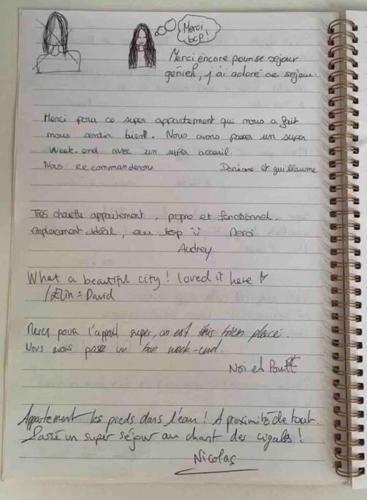 Merci
bcp!
Merci encore pour se séjour
génial, j'ai adoré ce séjour.
Merci pour ce super appartement qui nous a fait
nous sentir bien. Nous avons passer un super
Week-end avec un super accueil.
Nous recommanderons et guillaume
Très chouette appartement, propre et fonctionnel.
emplacement idéal, au top Merci
Audrey
What a beautiful city! loved it here
David
Merci pour l'appart super, on est très bien placé.
Nous avons passé un bon week-end.
Noi et
Appartement les pieds dans l'eau! A proximité de tout.
Passé un super séjour au chant des cigales!
Nicolas